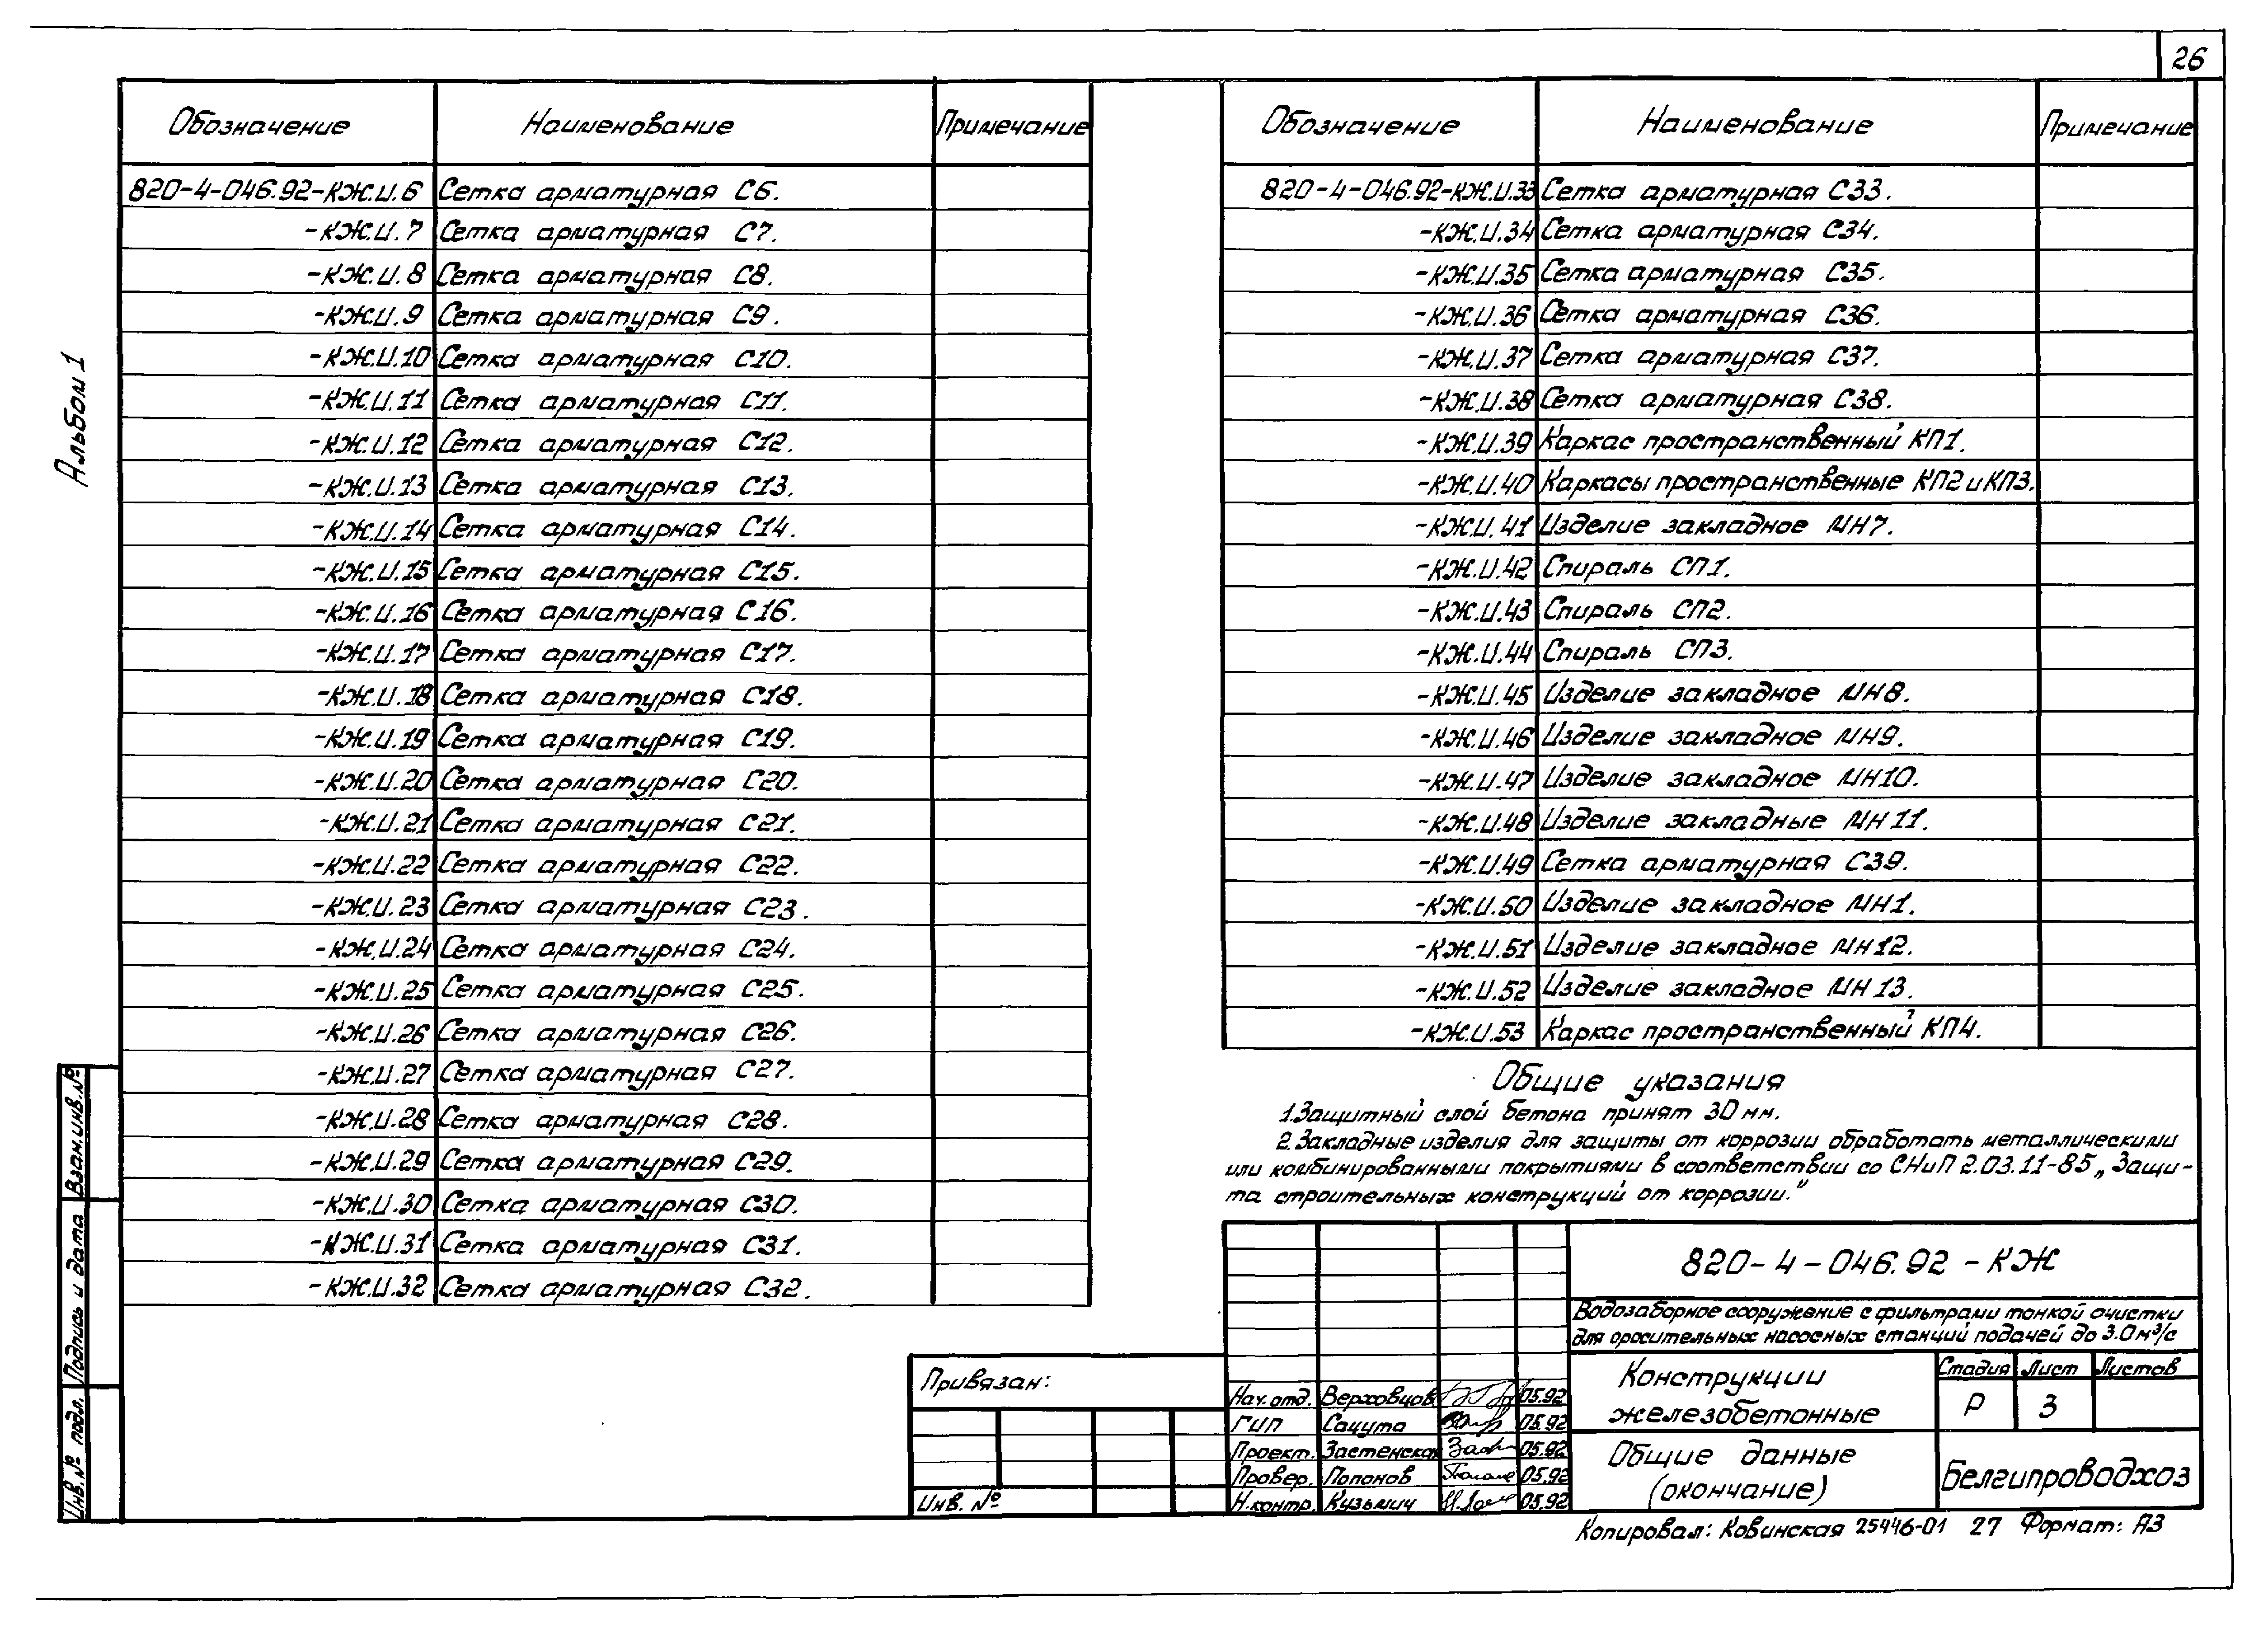 26
Альбом 1
Обозначение Наименование Примечание
820-4-046.92-КЖ.И.6 Сетка арматурная С6.
-КЖ.И.7 Сетка арматурная С7.
-КЖ.И.8 Сетка арматурная С8.
-КЖ.И.9 Сетка арматурная С9.
-КЖ.И.10 Сетка арматурная С10.
-КЖ.И.11 Сетка арматурная С11.
-КЖ.И.12 Сетка арматурная С12.
-КЖ.И.13 Сетка арматурная С13.
-КЖ.И.14 Сетка арматурная С14.
-КЖ.И.15 Сетка арматурная С15.
-КЖ.И.16 Сетка арматурная С16.
-КЖ.И.17 Сетка арматурная С17.
-КЖ.И.18 Сетка арматурная С18.
-КЖ.И.19 Сетка арматурная С19.
-КЖ.И.20 Сетка арматурная С20.
-КЖ.И.21 Сетка арматурная С21.
-КЖ.И.22 Сетка арматурная С22.
-КЖ.И.23 Сетка арматурная С23.
-КЖ.И.24 Сетка арматурная С24.
-КЖ.И.25 Сетка арматурная С25.
-КЖ.И.26 Сетка арматурная С26.
-КЖ.И.27 Сетка арматурная С27.
-КЖ.И.28 Сетка арматурная С28.
-КЖ.И.29 Сетка арматурная С29.
-КЖ.И.30 Сетка арматурная С30.
-КЖ.И.31 Сетка арматурная С31.
-КЖ.И.32 Сетка арматурная С32.
Обозначение Наименование Примечание
820-4-046.92-КЖ.И.33 Сетка арматурная С33.
-КЖ.И.34 Сетка арматурная С34.
-КЖ.И.35 Сетка арматурная С35.
-КЖ.И.36 Сетка арматурная С36.
-КЖ.И.37 Сетка арматурная С37.
-КЖ.И.38 Сетка арматурная С38.
-КЖ.И.39 Каркас пространственный КП1.
-КЖ.И.40 Каркасы пространственные КП2 и КП3.
-КЖ.И.41 Изделие закладное МН7.
-КЖ.И.42 Спираль СП1.
-КЖ.И.43 Спираль СП2.
-КЖ.И.44 Спираль СП3.
-КЖ.И.45 Изделие закладное МН8.
-КЖ.И.46 Изделие закладное МН9.
-КЖ.И.47 Изделие закладное МН10.
-КЖ.И.48 Изделие закладные МН11.
-КЖ.И.49 Сетка арматурная С39.
-КЖ.И.50 Изделие закладное МН1.
-КЖ.И.51 Изделие закладное МН12.
-КЖ.И.52 Изделие закладное МН13.
-КЖ.И.53 Каркас пространственный КП4.
Общие указания
1.Защитный слой бетона принят 30 мм.
2.Закладные изделия для защиты от коррозии обработать металлическими
или комбинированными покрытиями в соответствии со СНиП 2.03.11-85 „Защи-
та строительных конструкций от коррозии."
Взам.инв.№
Подпись и дата
Инв.№ подл.
Привязан:
Инв. №
820-4-046.92-КЖ
Водозаборное сооружение с фильтрами тонкой очистки
для оросительных насосных станций подачей до 3.0 м³/с
Нач.отд. Верховцов 05.92
ГИП Сацута 05.92
Проект. Застенская 05.92
Провер. Попонов 05.92
Н.контр. Кузьмич 05.92
Конструкции
железобетонные
Стадия Лист Листов
Р 3
Общие данные
(окончание)
Белгипроводхоз
Копировал: Ковинская 25446-01 27 Формат: А3